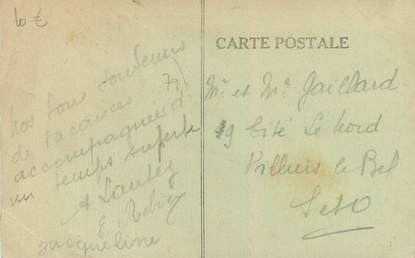 10 €
CARTE POSTALE
nos bons souvenirs
de vacances
accompagnés d'
un temps superbe
Jacqueline
Mr et Me Gaillard
9 Cité Le Nord
Villiers le Bel
S et O